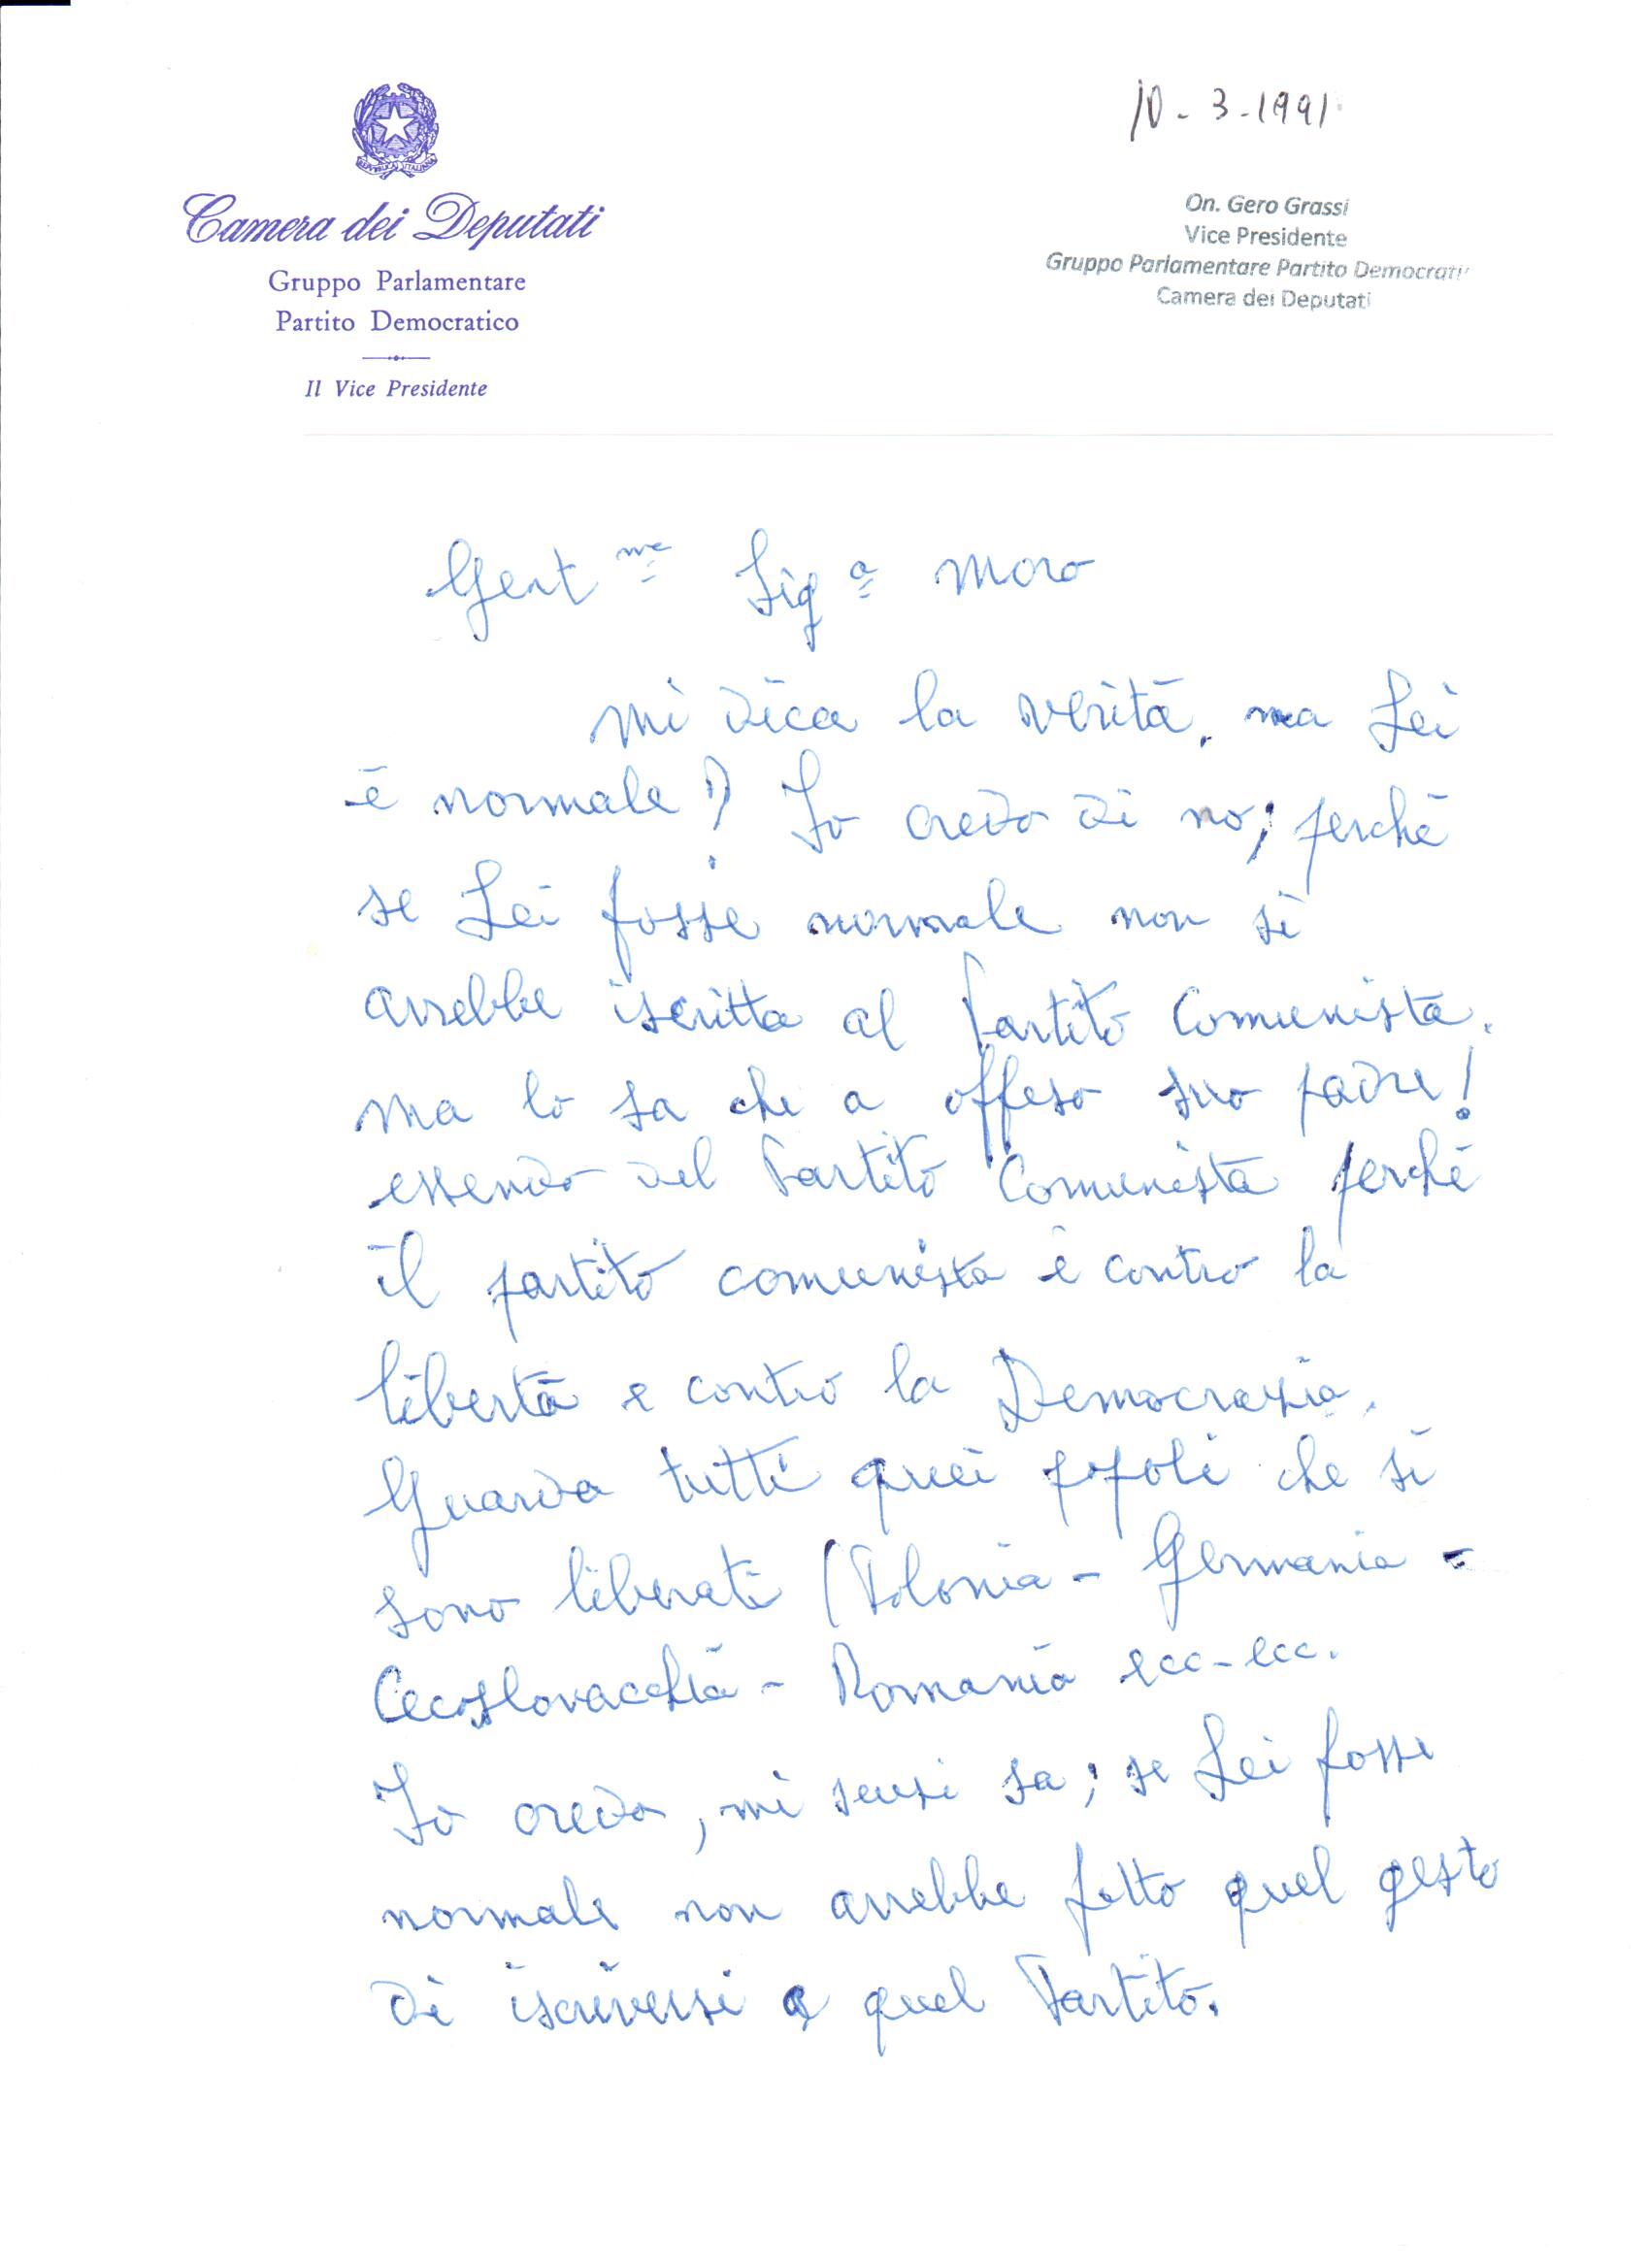 10-3-1991
Camera dei Deputati
Gruppo Parlamentare
Partito Democratico
Il Vice Presidente
On. Gero Grassi
Vice Presidente
Gruppo Parlamentare Partito Democrati
Camera dei Deputati
Gent me Sig a Moro
Mi dica la verità, ma Lei
è normale? Io credo di no; perché
se Lei fosse normale non si
avrebbe iscritta al Partito Comunista.
Ma lo sa che a offeso suo padre!
essendo del Partito Comunista perché
il partito comunista è contro la
libertà e contro la Democrazia.
Guarda tutti quei popoli che si
sono liberati (Polonia - Germania =
Cecoslovacchia - Romania ecc-ecc.
Io credo, mi scusi sa; se Lei fosse
normale non avrebbe fatto quel gesto
di iscriversi a quel Partito.